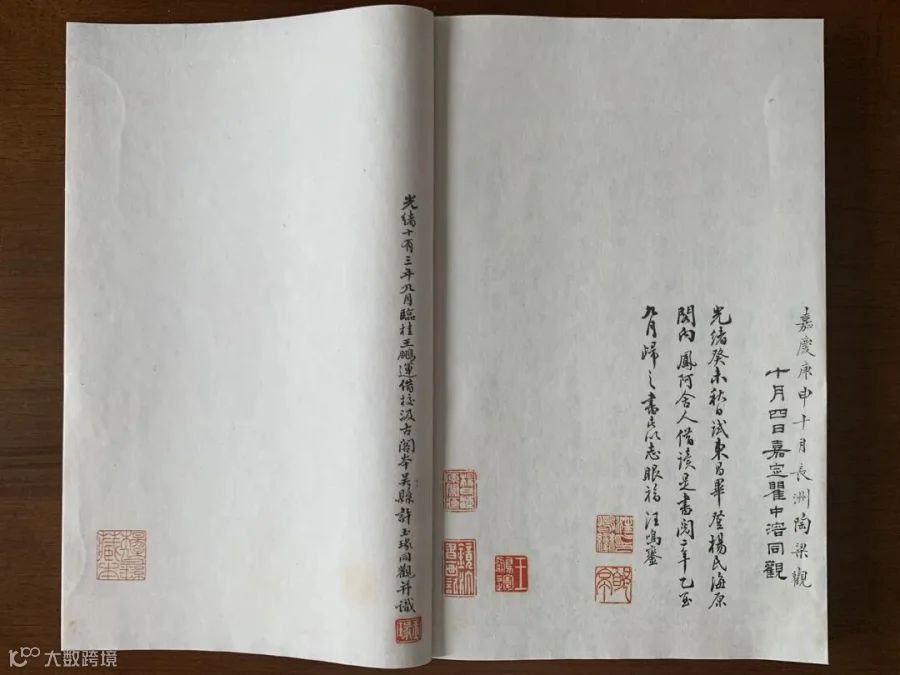 嘉慶庚申十月長洲陶梁觀
十月四日嘉定瞿中溶同觀
光緒癸未秋日試東昌畢登楊氏海原
閣向鳳阿舍人借讀是書閱二年乙酉
九月歸之書此以志眼福汪鳴鑾
光緒十有三年九月臨桂王鵬運借校汲古閣本吳縣許玉瑑同觀并識
大数跨境